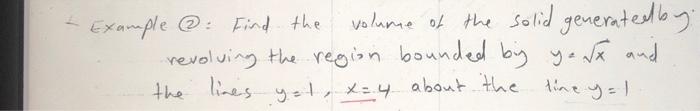 Example ②: Find the volume of the solid generated by
revolving the region bounded by y=√x and
the lines y=1, x=4 about the line y=1